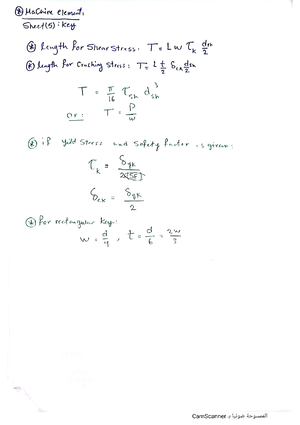 ⊛ Machine elements
Sheet(5): Key
⊛ Length for Shear Stress: T = L w τk dsh/2
⊛ Length for Crushing Stress: T = L t/2 δck dsh/2
T = π/16 τsh dsh³
or: T = P/w
⊛ if yield stress and Safety factor is given:
τk = δyk/2[SF]
δck = δyk/2
⊛ For rectangular Key:
w = d/4, t = d/6 = 2w/3
الممسوحة ضوئيا بـ CamScanner